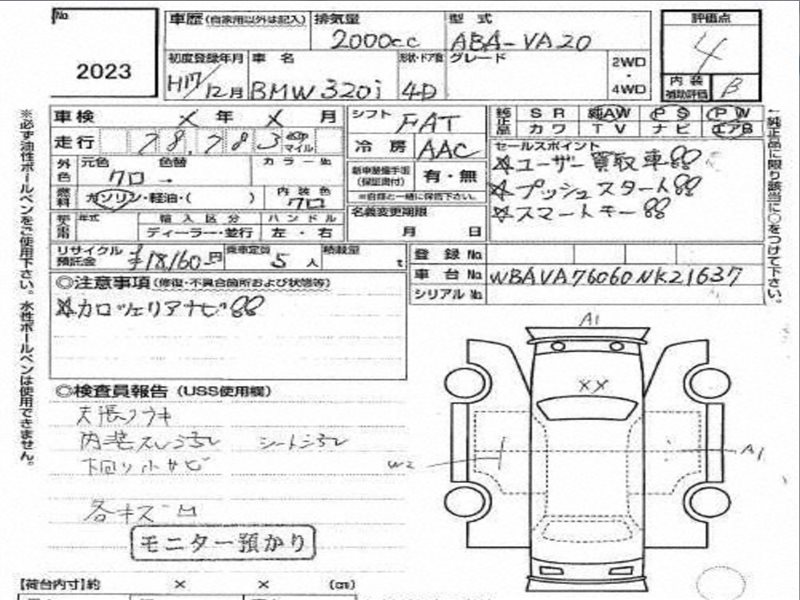 No
2023
車歴(自家用以外は記入) 排気量 型式 評価点
2000cc ABA-VA20 4
初度登録年月 車名 形状・ドア数 グレード 2WD・4WD 内装補助評価
H17/12月 BMW 320i 4D B
車検 × 年 × 月 シフト FAT
走行 78,783 km マイル 冷房 AAC
純正品 SR 純AW PS PW
カワ TV ナビ エアB
外色 元色 色替 カラーNo
クロ
新車整備手帳(保証書付) 有・無
※自賠と一緒に保管下さい。
燃料 ガソリン・軽油・( ) 内装色 クロ
名義変更期限 月 日
年式 輸入区分 ハンドル
ディーラー・並行 左・右
セールスポイント
☆ユーザー買取車!!
☆プッシュスタート!!
☆スマートキー!!
リサイクル預託金 ¥18,160円 乗車定員 5人 積載量 t
登録No
車台No WBAVA76060NK21637
シリアルNo
◎注意事項(修復・不具合箇所および状態等)
☆カロッツェリアナビ!!
◎検査員報告(USS使用欄)
天張ウキ
内装スレ汚れ シート汚れ
下回り小サビ
各キズ凹
モニター預かり
A1
××
W2
A1
【荷台内寸】約 × × (cm)
※必ず油性ボールペンをご使用下さい。水性ボールペンは使用できません。
←純正品に限り該当に○をつけて下さい。